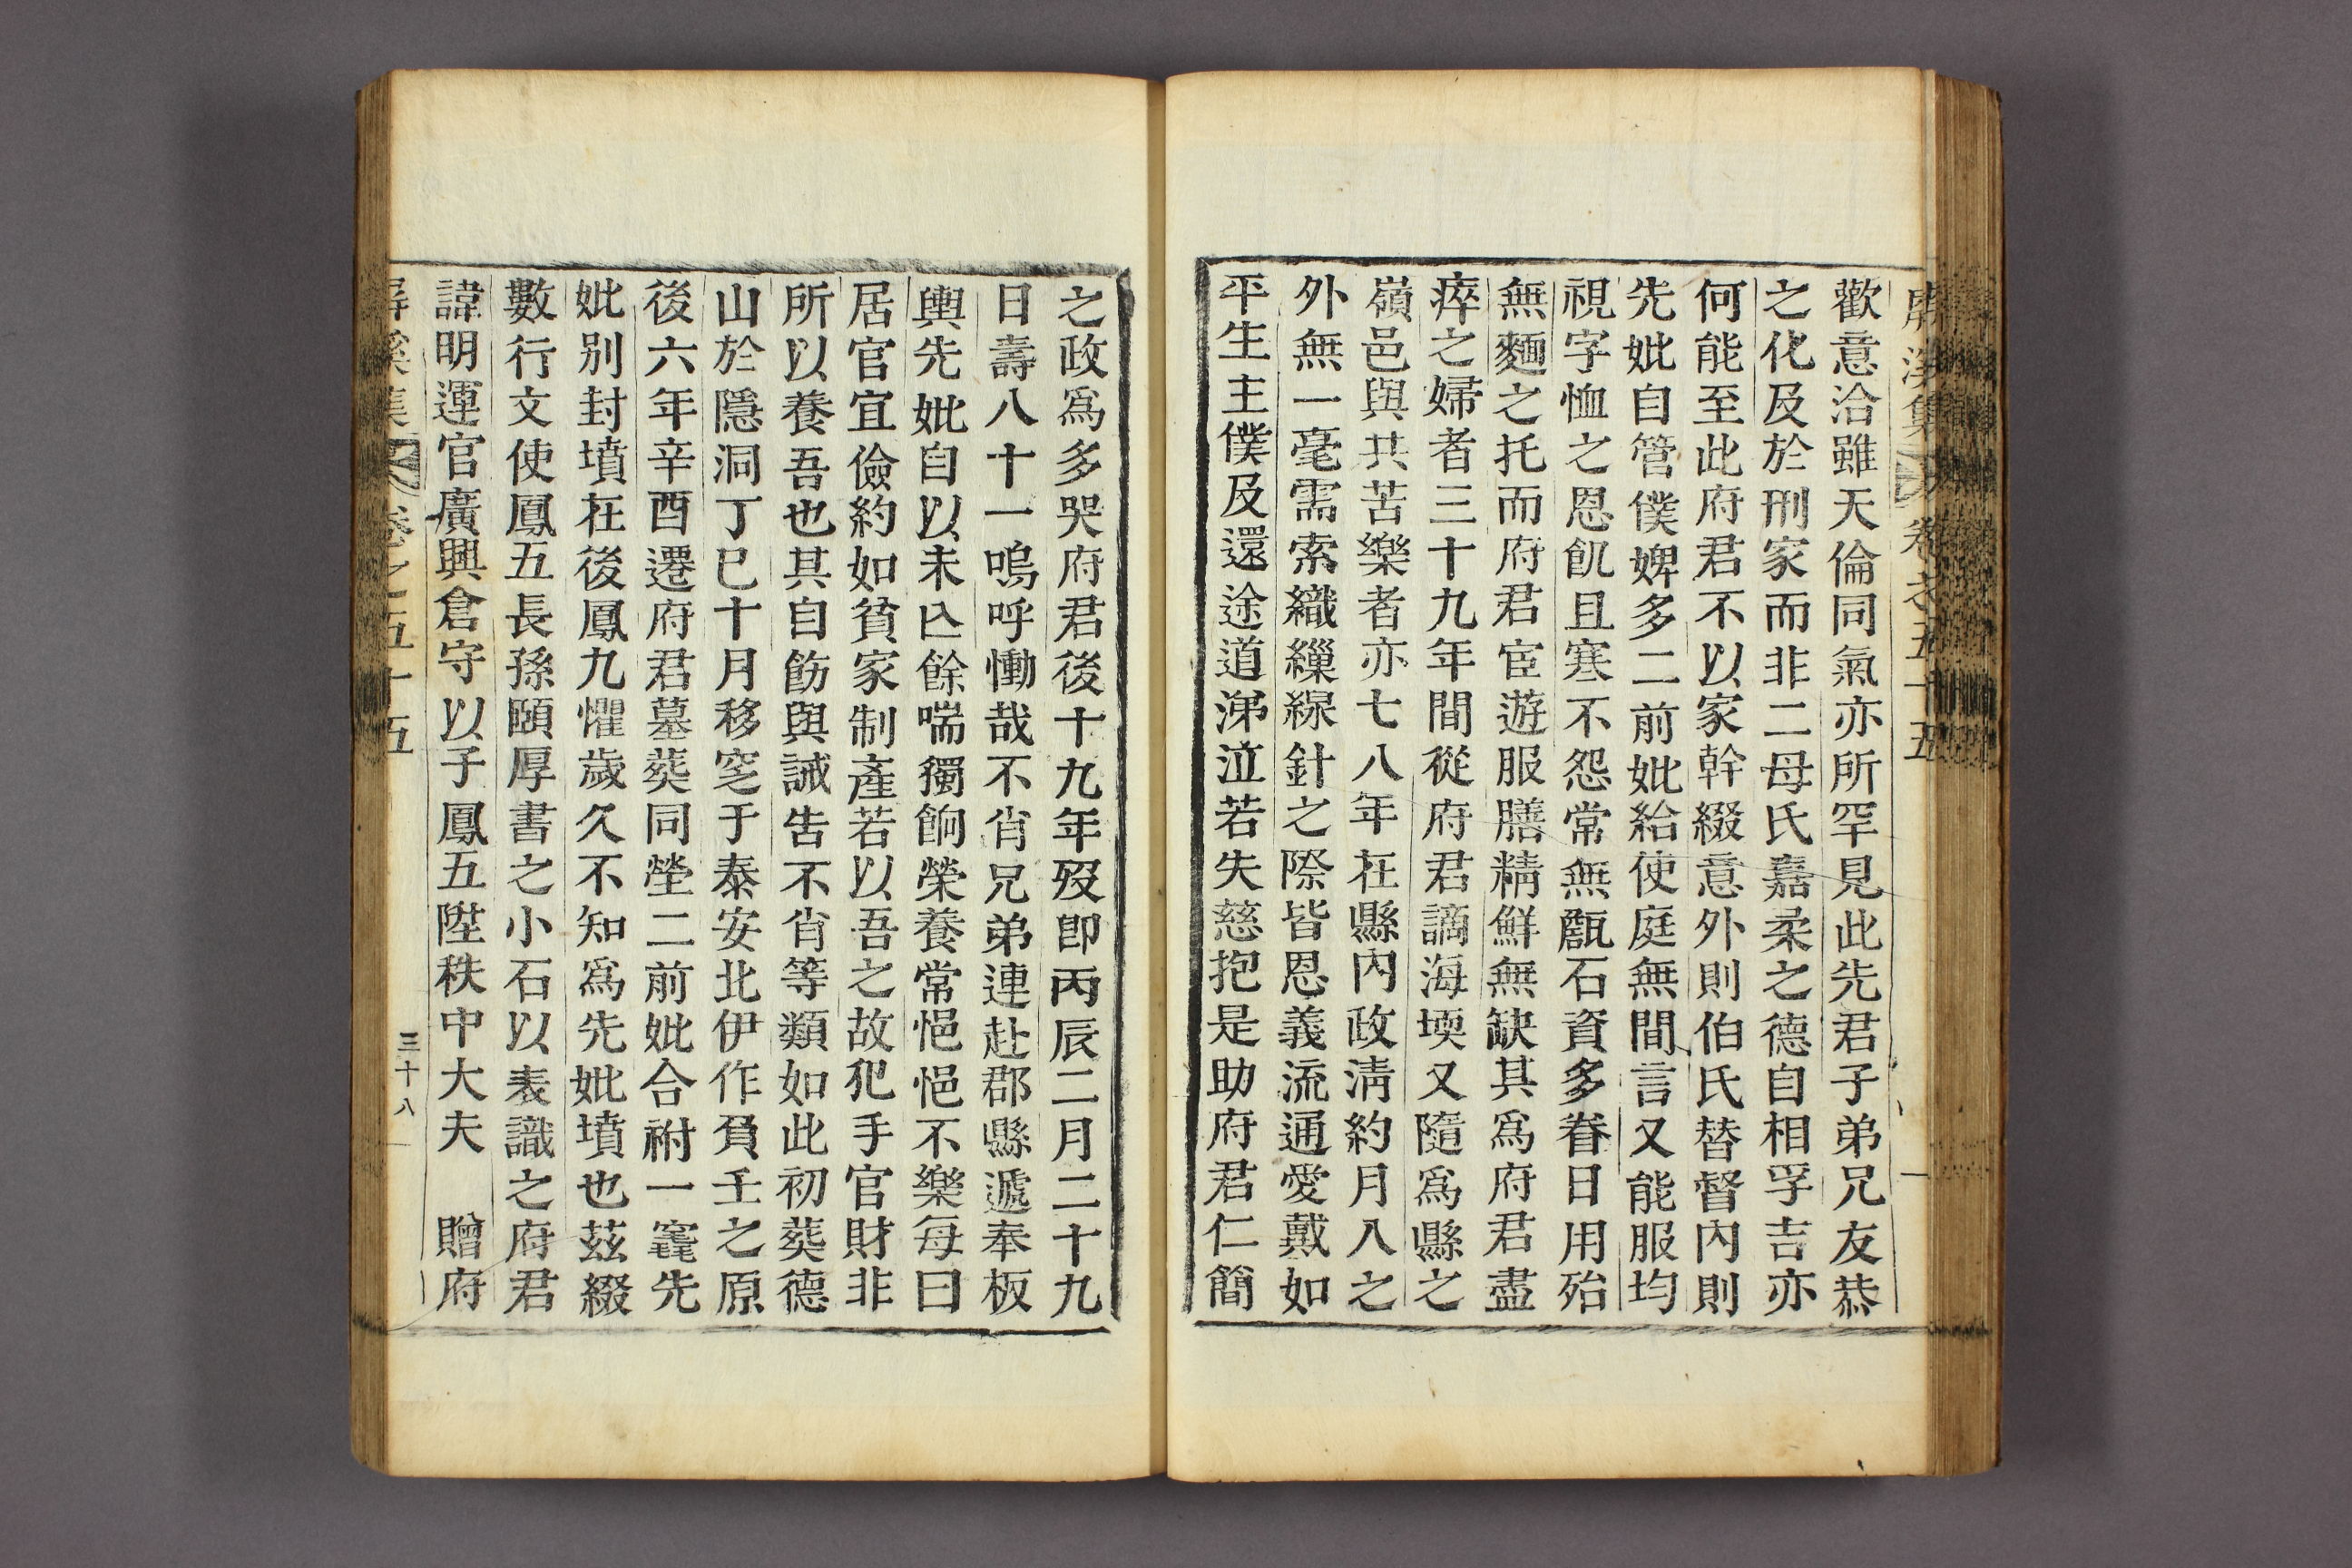 屛溪集 卷之五十五
歡意洽雖天倫同氣亦所罕見此先君子弟兄友恭
之化及於刑家而非二母氏嘉柔之德自相孚吉亦
何能至此府君不以家幹綴意外則伯氏替督內則
先妣自管僕婢多二前妣給使庭無間言又能服均
視字恤之恩飢且寒不怨常無甔石資多眷日用殆
無麵之托而府君宦遊服膳精鮮無缺其爲府君盡
瘁之婦者三十九年間從府君謫海堧又隨爲縣之
嶺邑與共苦樂者亦七八年在縣內政淸約月入之
外無一毫需索織繅綿針之際皆恩義流通愛戴如
平生主僕及還途道涕泣若失慈抱是助府君仁簡
之政爲多哭府君後十九年歿卽丙辰二月二十九
日壽八十一嗚呼慟哉不肖兄弟連赴郡縣遞奉板
輿先妣自以未亾餘喘獨餉榮養常悒悒不樂每曰
居官宜儉約如貧家制產若以吾之故犯手官財非
所以養吾也其自飭與誡告不肖等類如此初葬德
山於隱洞丁巳十月移窆于泰安北伊作負壬之原
後六年辛酉遷府君墓葬同塋二前妣合祔一窀先
妣別封墳在後鳳九懼歲久不知爲先妣墳也茲綴
數行文使鳳五長孫頤厚書之小石以表識之府君
諱明運官廣興倉守以子鳳五陞秩中大夫 贈府
屛溪集 卷之五十五 三十八